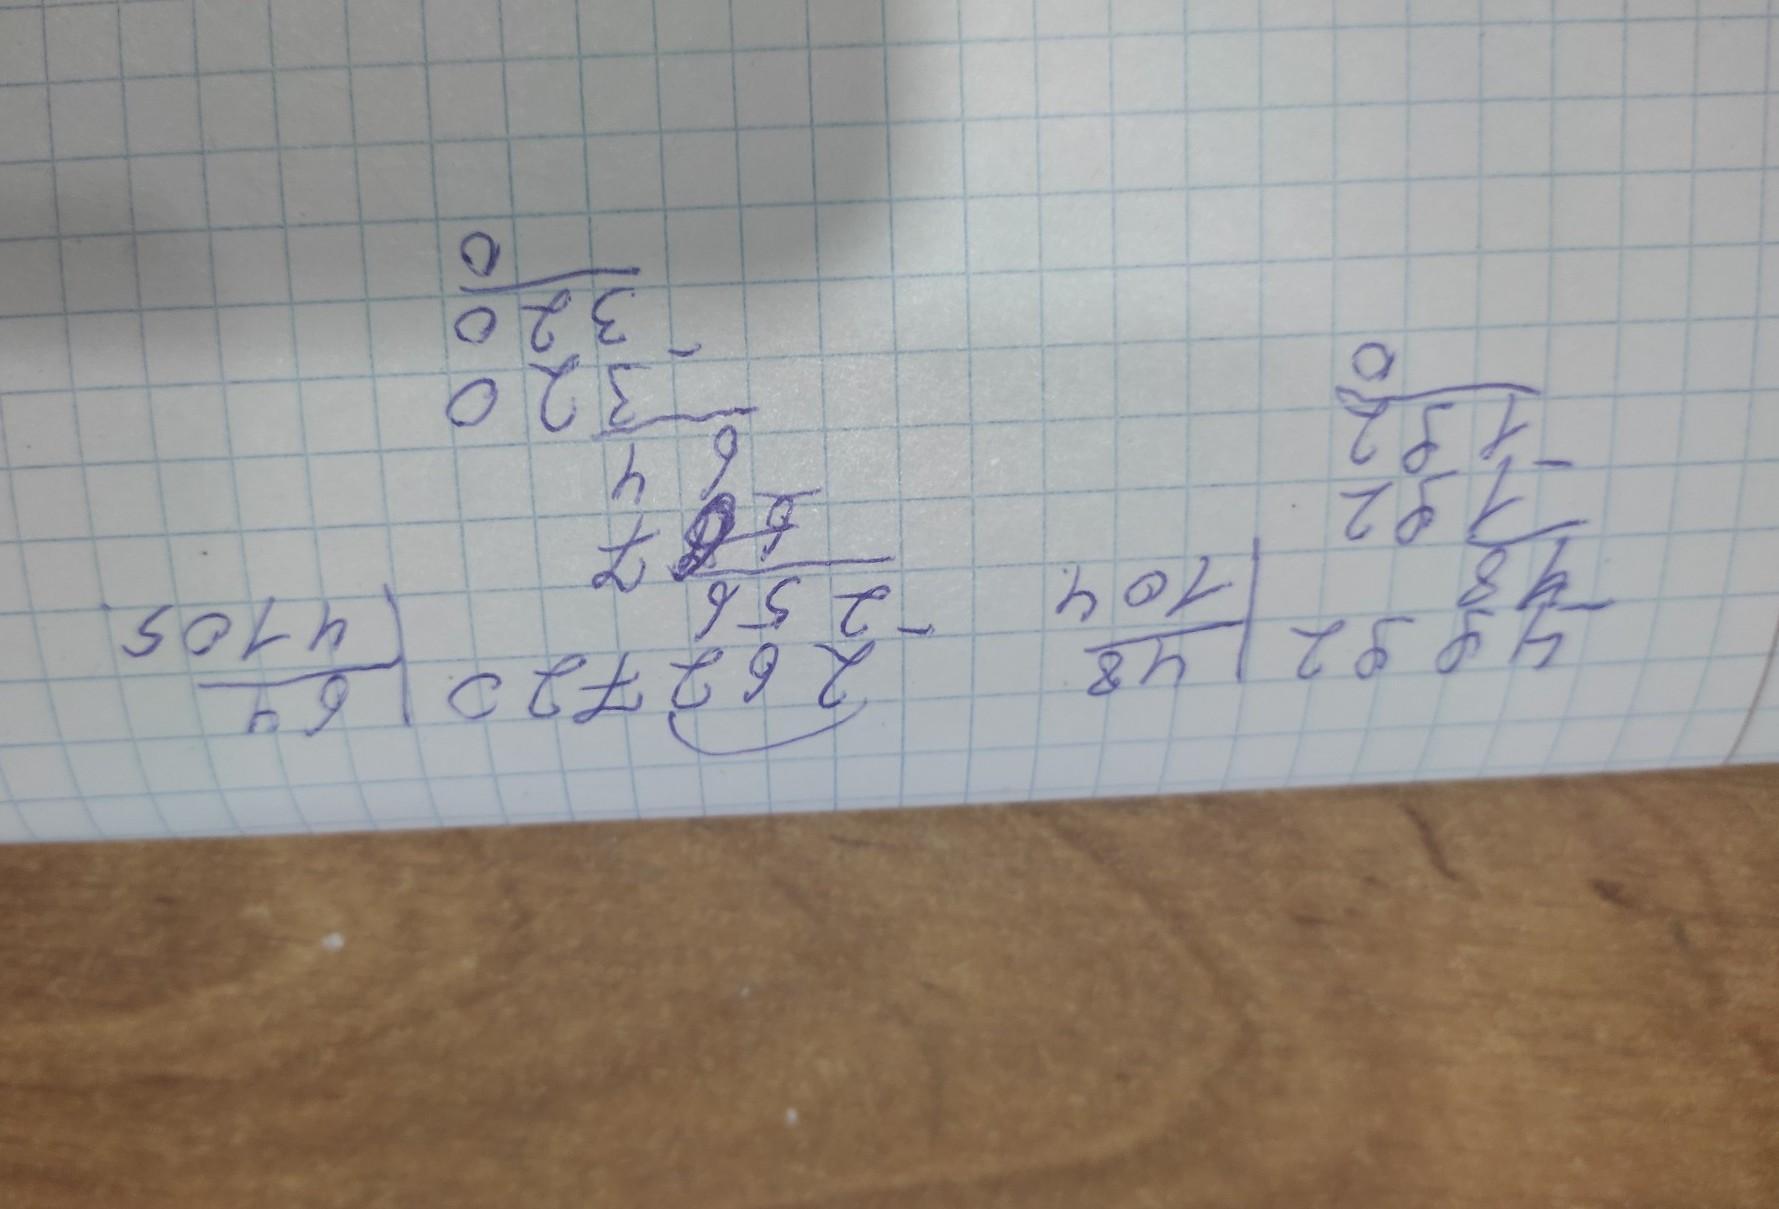 4992 | 48
- 48 | 104
192
- 192
0
262720 | 64
- 256 | 4105
67
- 64
320
- 320
0